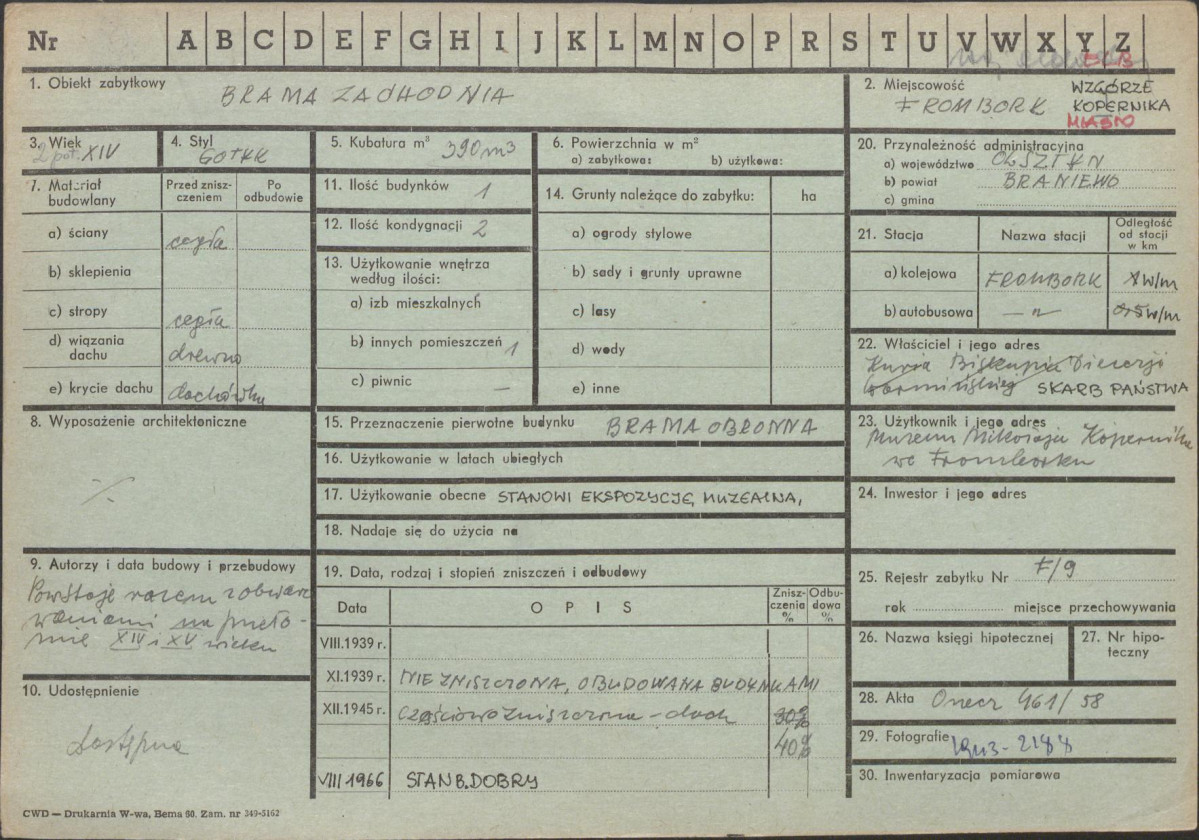 Nr A B C D E F G H I J K L M N O P R S T U V W X Y Z
1. Obiekt zabytkowy
BRAMA ZACHODNIA
2. Miejscowość WZGÓRZE
FROMBORK KOPERNIKA
MIASTO
3. Wiek
2 poł. XIV
4. Styl
GOTYK
5. Kubatura m³ 390 m3
6. Powierzchnia w m²
a) zabytkowa: b) użytkowa:
20. Przynależność administracyjna
a) województwo OLSZTYN
b) powiat BRANIEWO
c) gmina
7. Materiał budowlany
Przed zniszczeniem
Po odbudowie
a) ściany cegła
b) sklepienia
c) stropy cegła
d) wiązania dachu drewno
e) krycie dachu dachówka
11. Ilość budynków 1
12. Ilość kondygnacji 2
13. Użytkowanie wnętrza
według ilości:
a) izb mieszkalnych
b) innych pomieszczeń 1
c) piwnic —
14. Grunty należące do zabytku: ha
a) ogrody stylowe
b) sady i grunty uprawne
c) lasy
d) wody
e) inne
21. Stacja Nazwa stacji Odległość od stacji w km
a) kolejowa FROMBORK w/m
b) autobusowa — " — w/m
22. Właściciel i jego adres
Kuria Biskupia Diecezji
Warmińskiej SKARB PAŃSTWA
8. Wyposażenie architektoniczne
15. Przeznaczenie pierwotne budynku BRAMA OBRONNA
16. Użytkowanie w latach ubiegłych
17. Użytkowanie obecne STANOWI EKSPOZYCJĘ MUZEALNA,
18. Nadaje się do użycia na
23. Użytkownik i jego adres
Muzeum Mikołaja Kopernika
we Fromborku
24. Inwestor i jego adres
9. Autorzy i data budowy i przebudowy
Powstaje razem z obwarowaniami na przełomie XIV i XV wieku
10. Udostępnienie
dostępna
19. Data, rodzaj i stopień zniszczeń i odbudowy
Data OPIS Zniszczenia % Odbudowa %
VIII.1939 r.
XI.1939 r. NIE ZNISZCZONA, OBUDOWANA BUDYNKAMI
XII.1945 r. częściowo zniszczona - dach 30%
40%
VIII 1966 STAN B. DOBRY
25. Rejestr zabytku Nr F/9
rok miejsce przechowywania
26. Nazwa księgi hipotecznej
27. Nr hipoteczny
28. Akta Orzecz 461/58
29. Fotografie
30. Inwentaryzacja pomiarowa
CWD — Drukarnia W-wa, Bema 60. Zam. nr 349-5162